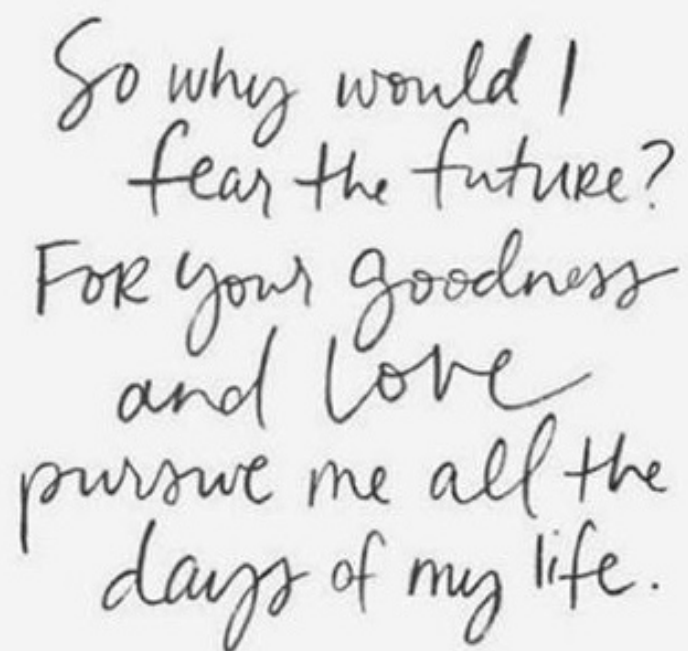 So why would I
fear the future?
FOR your goodness
and love
pursue me all the
days of my life.